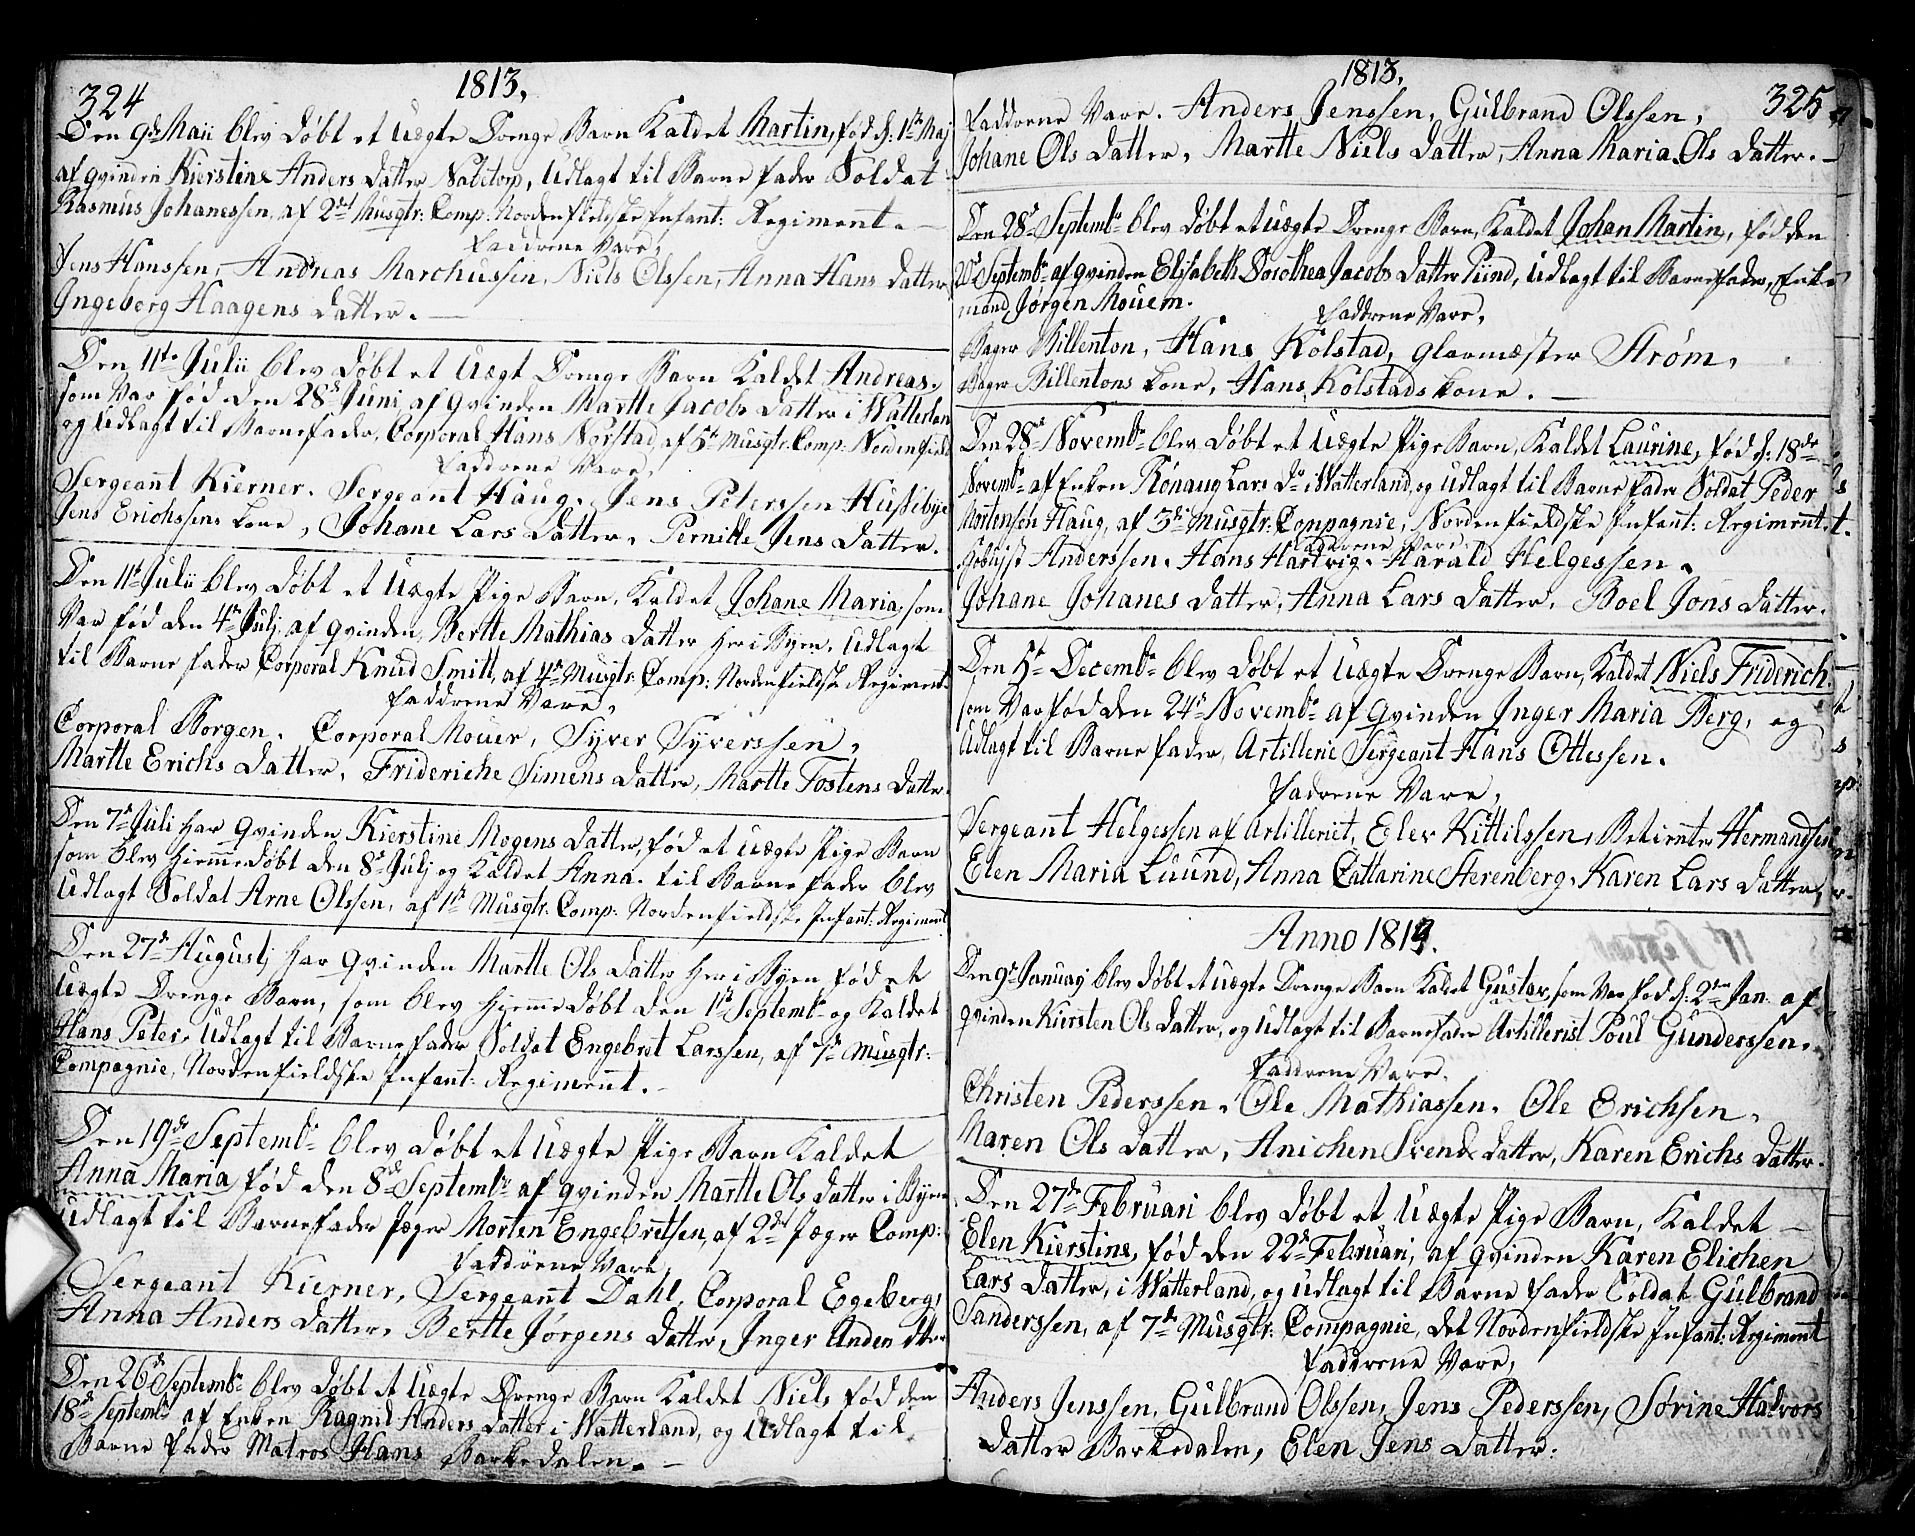 324
1813,
Den 9de Maii blev døbt et uægte Drenge Barn kaldet Martin, fød d: 1ste Maj
af qvinden Kierstine Anders datter Nabetorp, udlagt til Barne fader Soldat
Rasmus Johanessen, af 2det Musqtr: Comp: Nordenfieldske Infant: Regiment.
Faddrene Vare,
Jens Hanssen, Andreas Marchussen, Niels Olssen, Anna Hans datter
Ingeborg Haagens datter.
Den 11te Julii blev døbt et uægt Drenge Barn kaldet Andreas,
som Var fød den 28de Juni af qvinden Marthe Jacobs datter i Watterland
og udlagt til Barnefader, Corporal Hans Norstad af 5te Musqtr: Comp: Nordenfield
Faddrene Vare,
Sergeant Kierner. Sergeant Haug. Jens Peterssen Hussebye
Jens Erichssens kone, Johane Lars Datter, Pernille Jens Datter.
Den 11te Julii blev døbt et uægte Pige Barn, kaldet Johane Maria, som
Var fød den 4de Julj af qvinden, Bertte Mathias datter her i Byen. udlagt
til Barne fader Corporal Knud Smitt, af 4de Musqtr: Comp: Nordenfieldske Regiment.
Faddrene Vare,
Corporal Borgen. Corporal Mouer, Syver Syverssen,
Martte Erichs datter, Frideriche Simens datter, Martte Tostens datter.
Den 7de Juli har qvinden Kierstine Mogens datter, fød et uægte Pige Barn
som blev hiemmedøbt den 8de Julj og kaldet Anna. til Barne fader blev
udlagt Soldat Arne Olssen, af 1ste Musqtr: Comp: Nordenfieldske Infant: Regiment
Den 27de Augustj har qvinden Martte Ols datter her i Byen fød et
uægte Drenge Barn, som blev hiemmedøbt den 1ste Septembr og kaldet
Hans Peter, udlagt til Barnefader Soldat Engebret Larssen, af 7de Musqtr:
Compagnie, Nordenfieldske Infant: Regiment.
Den 19de Septembr blev døbt et uægte Pige Barn kaldet
Anna Maria, fød den 8de Septembr af qvinden Martte Ols datter i Byen
udlagt til Barnefader Jæger Morten Engebretsen, af 2det Jæger Comp:
Faddrene Vare,
Sergeant Kierner, Sergeant Dahl, Corporal Egeberg,
Anna Anders datter, Bertte Jørgens datter, Inger Anders dtter
Den 26de Septembr blev døbt et uægte Drenge Barn kaldet Niels fød den
18de Septembr af Enken Ragnil Anders datter i Watterland, og udlagt til
Barne fader Matros Hans Barkedalen.
1813,
325
Faddrene Vare. Anders Jenssen, Gulbrand Olssen,
Johane Ols datter, Martte Niels datter, Anna Maria Ols datter.
Den 28de Septembr blev døbt et uægte Drenge Barn, kaldet Johan Martin, fød den
Septembr af qvinden Elisabeth Dorothea Jacobs datter Pünd, udlagt til Barnefader, Enke
mand Jørgen Mouem.
Faddrene Vare,
Bager Billenton, Hans Kolstad, Glarmæster Strøm,
Bager Billentons kone, Hans Kolstads kone.
Den 28de Novembr blev døbt et uægte Pige Barn, kaldet Laurine, fød d: 18de
Novembr af Enken Rønaug Lars Dr. i Watterland, og udlagt til Barne fader Soldat Peder
Mortensen Haug, af 3die Musqtr: Conpagnie, Nordenfieldske Infant: Regiment.
Faddrene Vare.
Anderssen. Hans Hartvig. Harald Helgessen.
Johane Johanes datter, Anna Lars datter. Boel Jons datter.
Den 5te Decembr blev døbt et uægte Drenge Barn, kaldet Niels Friderich
som Var fød den 24de Novembr af qvinden Inger Maria Berg, og
udlagt til Barne fader, Artillerie Sergeant Hans Ottessen.
Fadrene Vare,
Sergeant Helgessen af Artilleriet, Elev Kittilssen, Betienter Hermandsen
Elen Maria Luund, Anna Cattarine Sterenberg, Karen Lars datter,
Anno 1814.
Den 9de Januarj blev døbt et uægte Drenge Barn kaldet Gustav, som Var fød d: 2den Jan: af
qvinden Kirsten Ols datter, og udlagt til Barnefader Artillerist Poul Gunderssen.
Faddrene Vare.
Christen Pederssen, Ole Mathiassen. Ole Erichsen,
Maren Ols datter, Anichen Svends datter, Karen Erichs datter.
Den 27de Februari blev døbt et uægte Pige Barn, kaldet
Elen Kierstine, fød den 22de Februari, af qvinden Karen Elichen
Lars datter, i Watterland, og udlagt til Barne fader Soldat Gulbrand
Sanderssen, af 7de Musqtr: Compagnie, det Nordenfieldske Infant: Regiment
Faddrene Vare,
Anders Jenssen, Gulbrand Olssen, Jens Pederssen, Sørine Halvors
datter Barkedalen, Elen Jens datter.